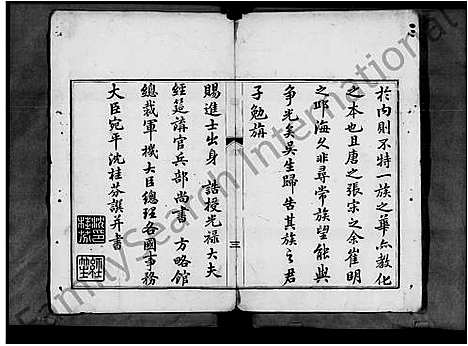 於內則不特一族之華亦教化
之本也且唐之張宗之余崔明
之邱海久非尋常族望能與
爭光矣吴生歸告其族之君
子勉旃
賜進士出身 誥授光禄大夫
經筵講官兵部尚書 方略館
總裁軍機大臣總理各國事務
大臣宛平沈桂芬譔并書
三
沈印桂芬
FamilySearch International